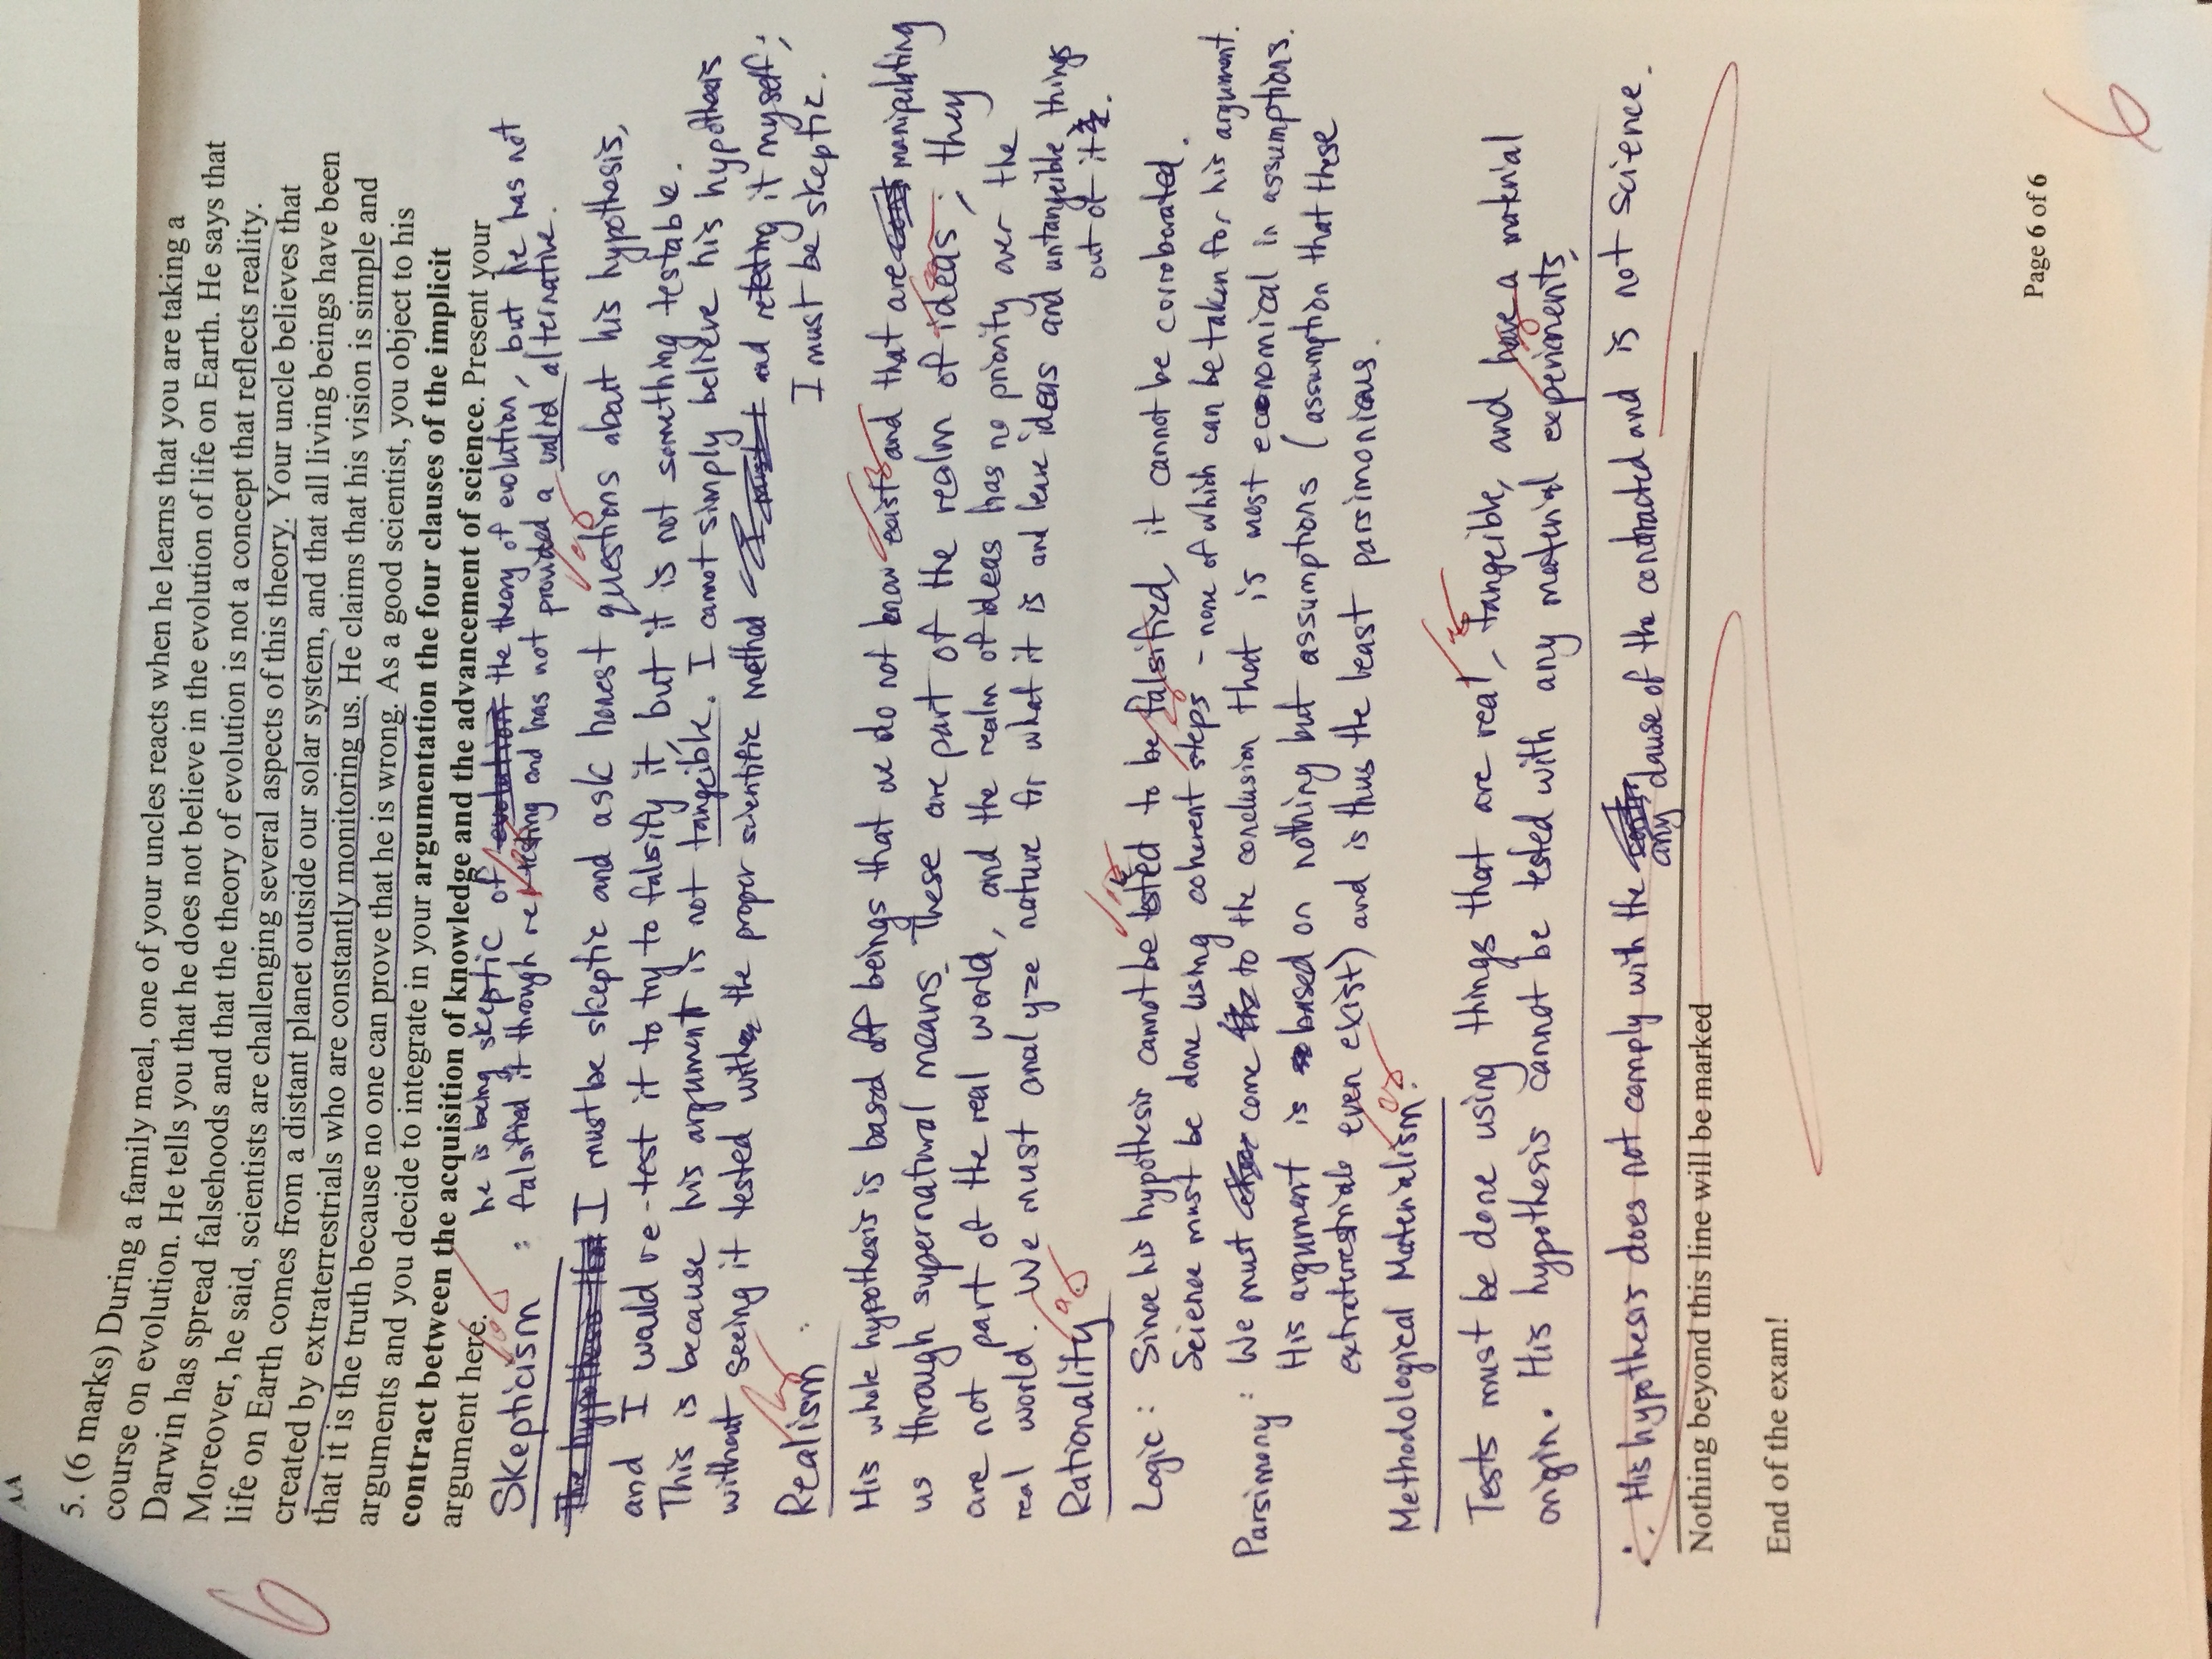 6
5. (6 marks) During a family meal, one of your uncles reacts when he learns that you are taking a
course on evolution. He tells you that he does not believe in the evolution of life on Earth. He says that
Darwin has spread falsehoods and that the theory of evolution is not a concept that reflects reality.
Moreover, he said, scientists are challenging several aspects of this theory. Your uncle believes that
life on Earth comes from a distant planet outside our solar system, and that all living beings have been
created by extraterrestrials who are constantly monitoring us. He claims that his vision is simple and
that it is the truth because no one can prove that he is wrong. As a good scientist, you object to his
arguments and you decide to integrate in your argumentation the four clauses of the implicit
contract between the acquisition of knowledge and the advancement of science. Present your
argument here.
Skepticism : he is being skeptic of the theory of evolution, but he has not
falsified it through retesting and has not provided a valid alternative.
I must be skeptic and ask honest questions about his hypothesis,
and I would re-test it to try to falsify it, but it is not something testable.
This is because his argument is not tangeible. I cannot simply believe his hypothesis
without seeing it tested with the proper scientific method and retesting it myself;
I must be skeptic.
Realism
His whole hypothesis is based off beings that we do not know exist and that are manipulating
us through supernatural means. These are part of the realm of ideas; they
are not part of the real world, and the realm of ideas has no priority over the
real world. We must analyze nature for what it is and leave ideas and untangeible things
out of it.
Rationality
Logic : Since his hypothesis cannot be tested to be falsified, it cannot be corroborated.
Science must be done using coherent steps - none of which can be taken for his argument.
Parsimony : We must come to the conclusion that is most economical in assumptions.
His argument is based on nothing but assumptions (assumption that these
extraterrestrials even exist) and is thus the least parsimonious.
Methodological Materialism:
Tests must be done using things that are real, tangeible, and have a material
origin. His hypothesis cannot be tested with any material experiments.
∴ His hypothesis does not comply with the any clause of the contracted and is not science.
Nothing beyond this line will be marked
End of the exam!
Page 6 of 6
6